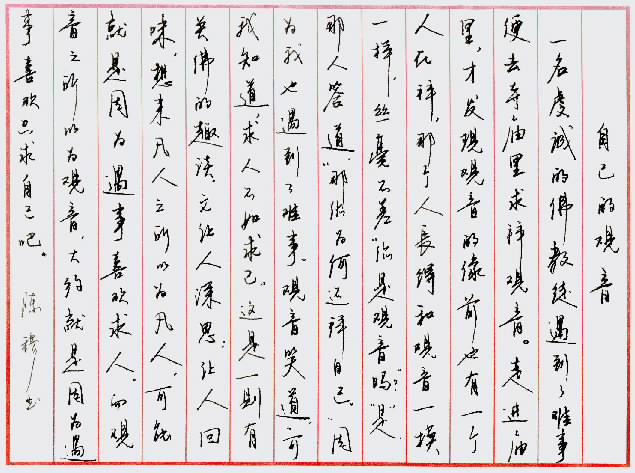 自己的观音
一名虔诚的佛教徒遇到了难事
便去寺庙里求拜观音。走进庙
里,才发现观音的像前也有一个
人在拜,那个人长得和观音一模
一样,丝毫不差“你是观音吗?”“是”
那人答道“那你为何还拜自己”因
为我也遇到了难事,观音笑道,可
我知道“求人不如求己。这是一则有
关佛的趣谈,让人深思,让人回
味,想来凡人之所以为凡人,可能
就是因为遇事喜欢求人。而观
音之所以为观音,大约就是因为遇
事喜欢只求自己吧。
陈穆书